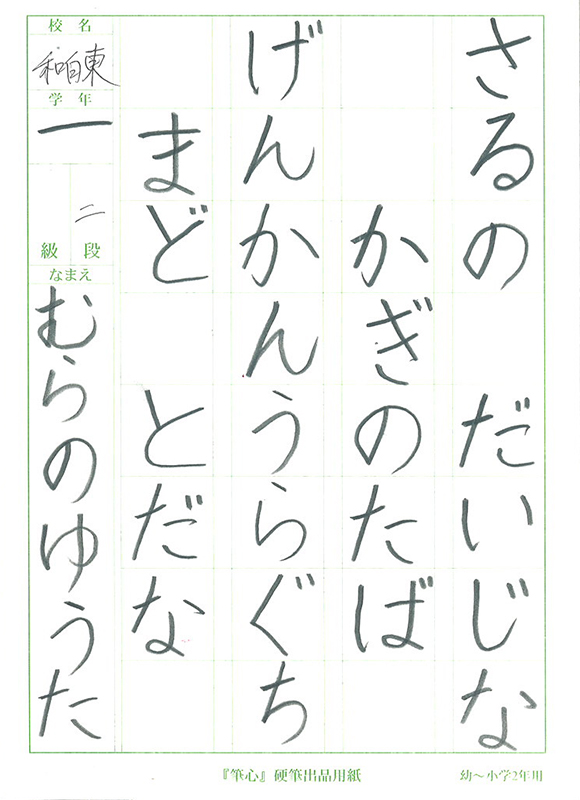 さるの　だいじな
かぎのたば
げんかんうらぐち
まど　とだな
校名
和白東
学年
一
段
二
級
なまえ
むらのゆうた
『筆心』硬筆出品用紙
幼～小学2年用